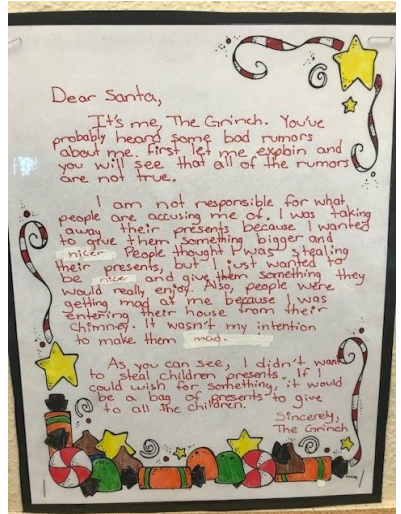 Dear Santa,
It's me, The Grinch. You've
probably heard some bad rumors
about me. First let me explain and
you will see that all of the rumors
are not true.
I am not responsible for what
people are accusing me of. I was taking
away their presents because I wanted
to give them something bigger and
nicer. People thought I was stealing
their presents, but I just wanted to
be nice and give them something they
would really enjoy. Also, people were
getting mad at me because I was
entering their house from their
chimney. It wasn't my intention
to make them mad.
As you can see, I didn't want
to steal children presents. If I
could wish for something, it would
be a bag of presents to give
to all the children.
Sincerely,
The Grinch